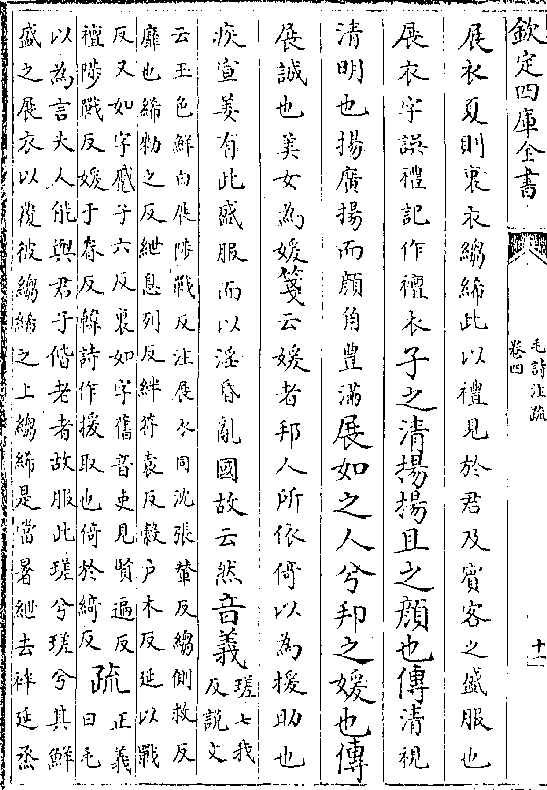 欽定四庫全書
毛詩注疏
卷四
十一
展衣夏則裏衣縐絺此以禮見於君及賓客之盛服也
展衣字誤禮記作襢衣子之清揚揚且之顔也傳清視
清明也揚廣揚而顔角豊滿展如之人兮邦之媛也傳
展誠也美女為媛箋云媛者邦人所依倚以為援助也
疾宣姜有此盛服而以淫昏亂國故云然音義瑳七我
反説文
云玉色鮮白展陟戰反注展衣同沈張輦反縐側救反
靡也絺勑之反紲息列反絆符袁反縠户木反延以戰
反又如字蹙子六反裏如字舊音吏見賢遍反
襢陟戰反媛于眷反韓詩作援取也倚於綺反疏正義
曰毛
以為言夫人能與君子偕老者故服此瑳兮瑳兮其鮮
盛之展衣以覆彼縐絺之上縐絺是當暑紲去袢延烝